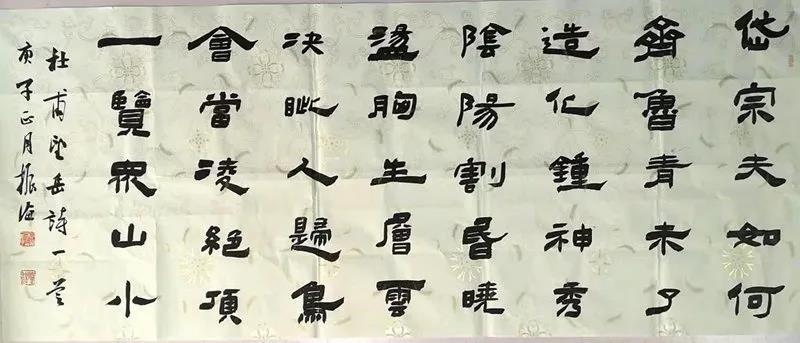 岱宗夫如何
齊魯青未了
造化鍾神秀
陰陽割昏曉
盪胸生層雲
決眥入歸鳥
會當凌絕頂
一覽眾山小
杜甫望岳詩一首
庚子正月振海